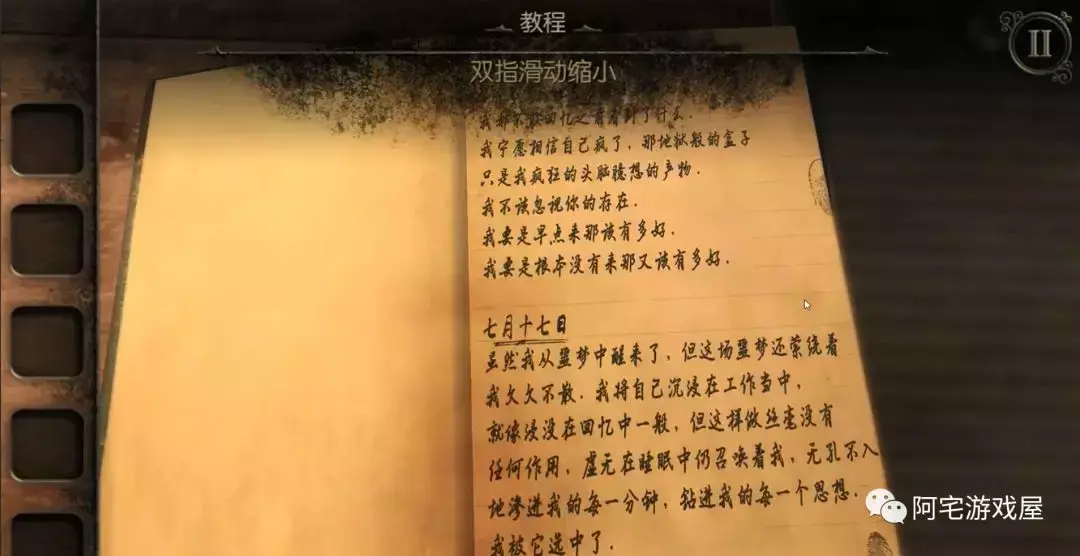 教程
双指滑动缩小
我都不敢回忆之前看到了什么.
我宁愿相信自己疯了，那地狱般的盒子
只是我疯狂的头脑臆想的产物.
我不该忽视你的存在.
我要是早点来那该有多好.
我要是根本没有来那又该有多好.
七月十七日
虽然我从噩梦中醒来了，但这场噩梦还萦绕着
我久久不散.我将自己沉浸在工作当中，
就像浸没在回忆中一般，但这样做丝毫没有
任何作用，虚无在睡眠中仍召唤着我，无孔不入
地渗进我的每一分钟，钻进我的每一个思想.
我被它选中了.
阿宅游戏屋